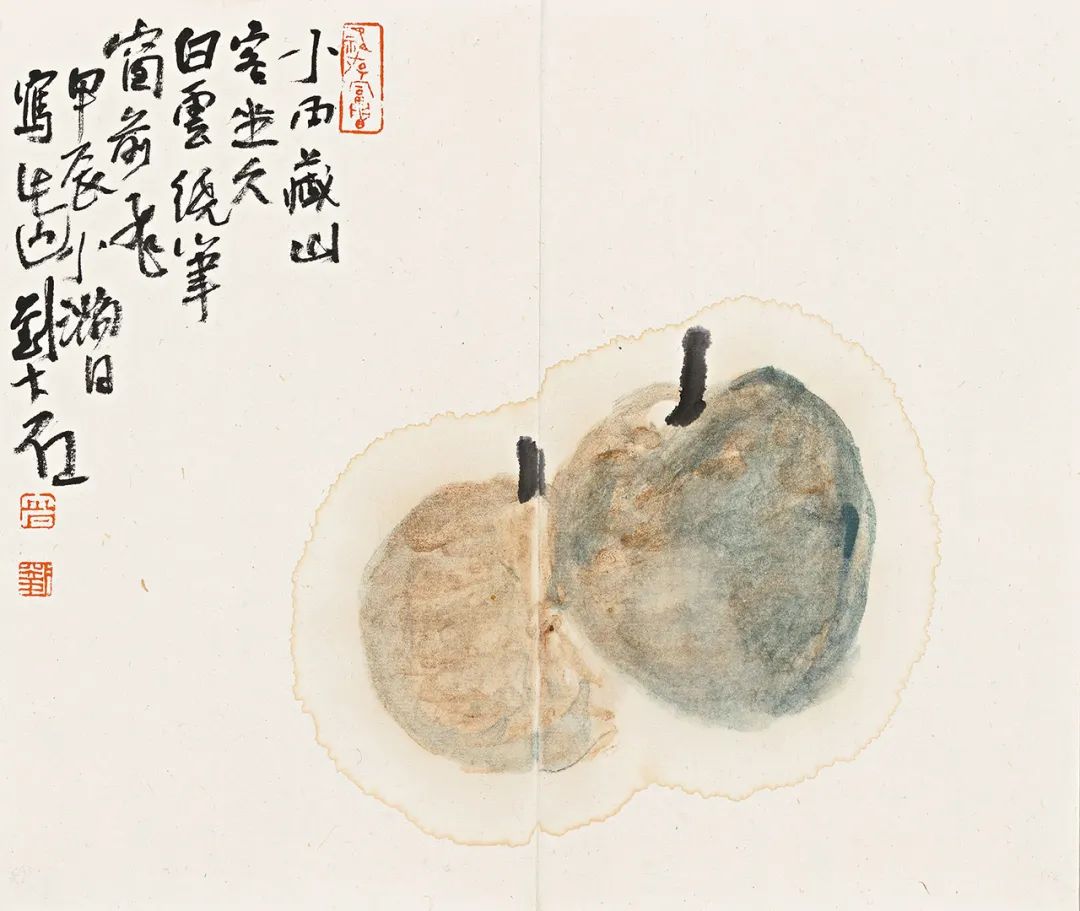 小雨藏山
客坐久
白雲繞筆
窗前飛
甲辰小滿日
寫生 劉